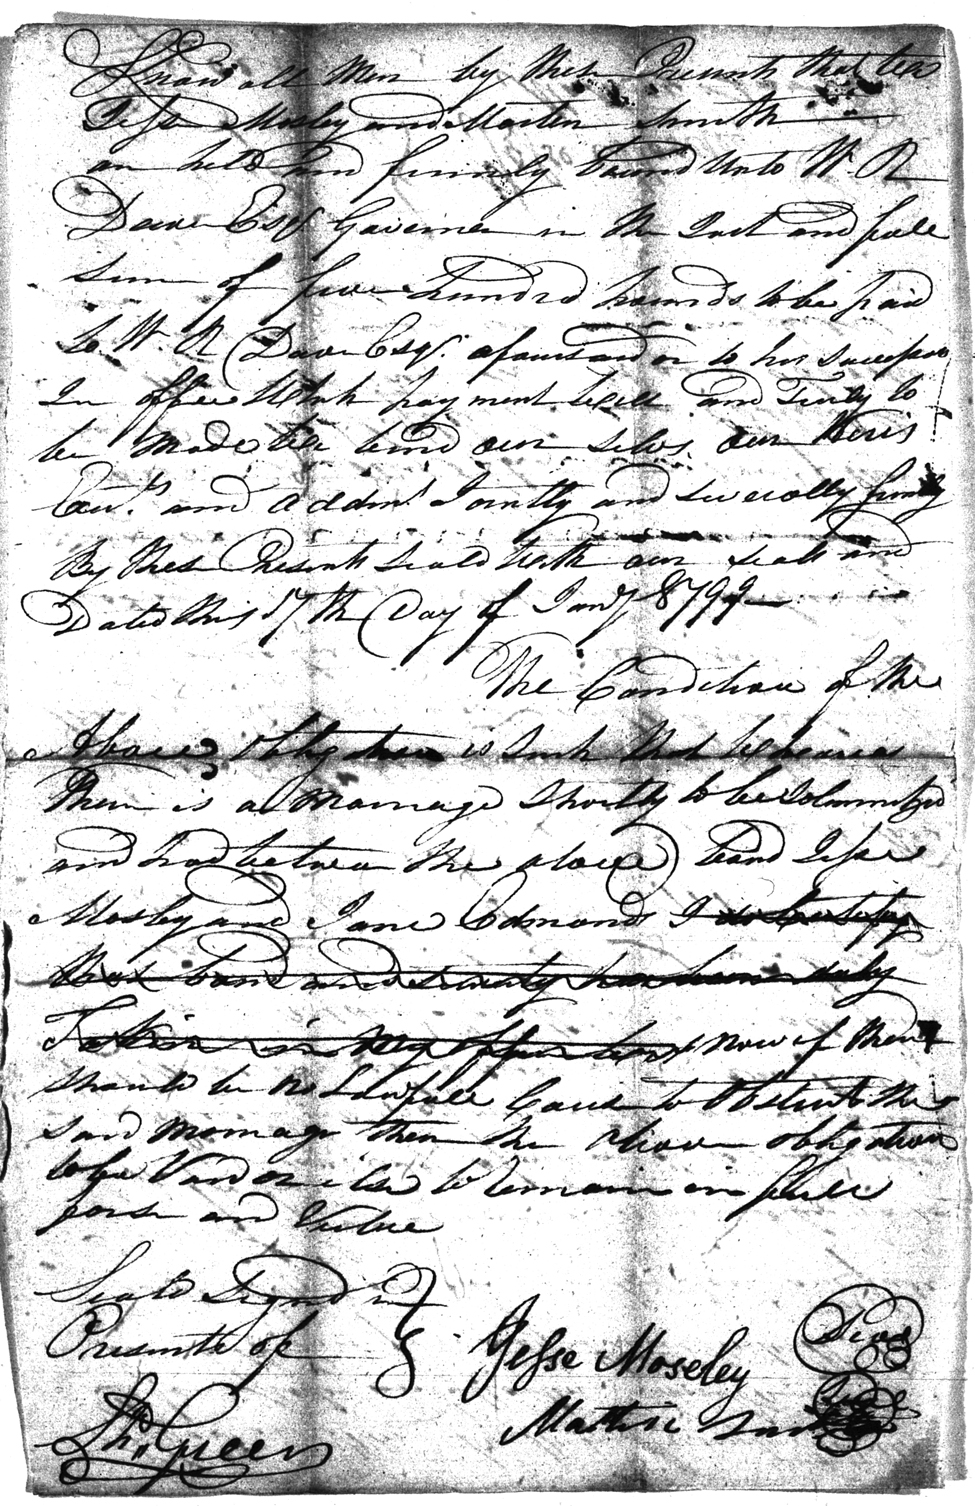 Know all Men by these Presents that wee
Jesse Mosley and Marten Smith
are held and firmly bound unto W. R
Davie Esqr Governer in the Just and full
Sum of five Hundred pounds to be paid
to W. R Davie Esqr. aforesaid or to his Successors
In office Which payment well and Truly to
be Made wee bind our selvs our Heirs
Exrs. and Addmrs. Jointly and severally firmly
By these Presents Seald with our seals and
Dated this 17th Day of Jany 1799
The Condition of the
Above obligation is Such that whereas
There is a Marriage Shortly to be Solemnized
and had between the above band Jesse
Mosley and Jane Edmonds I do Certify
that band and Security has been duly
Taken in My office now if there
should be no Lawfull Cause to Obstruct the
said Marriage then the above obligation
to be Void or else to Remain in full
force and Virtue
Seald Signd in
Presents of
Jesse Moseley Seal
Seal
Green